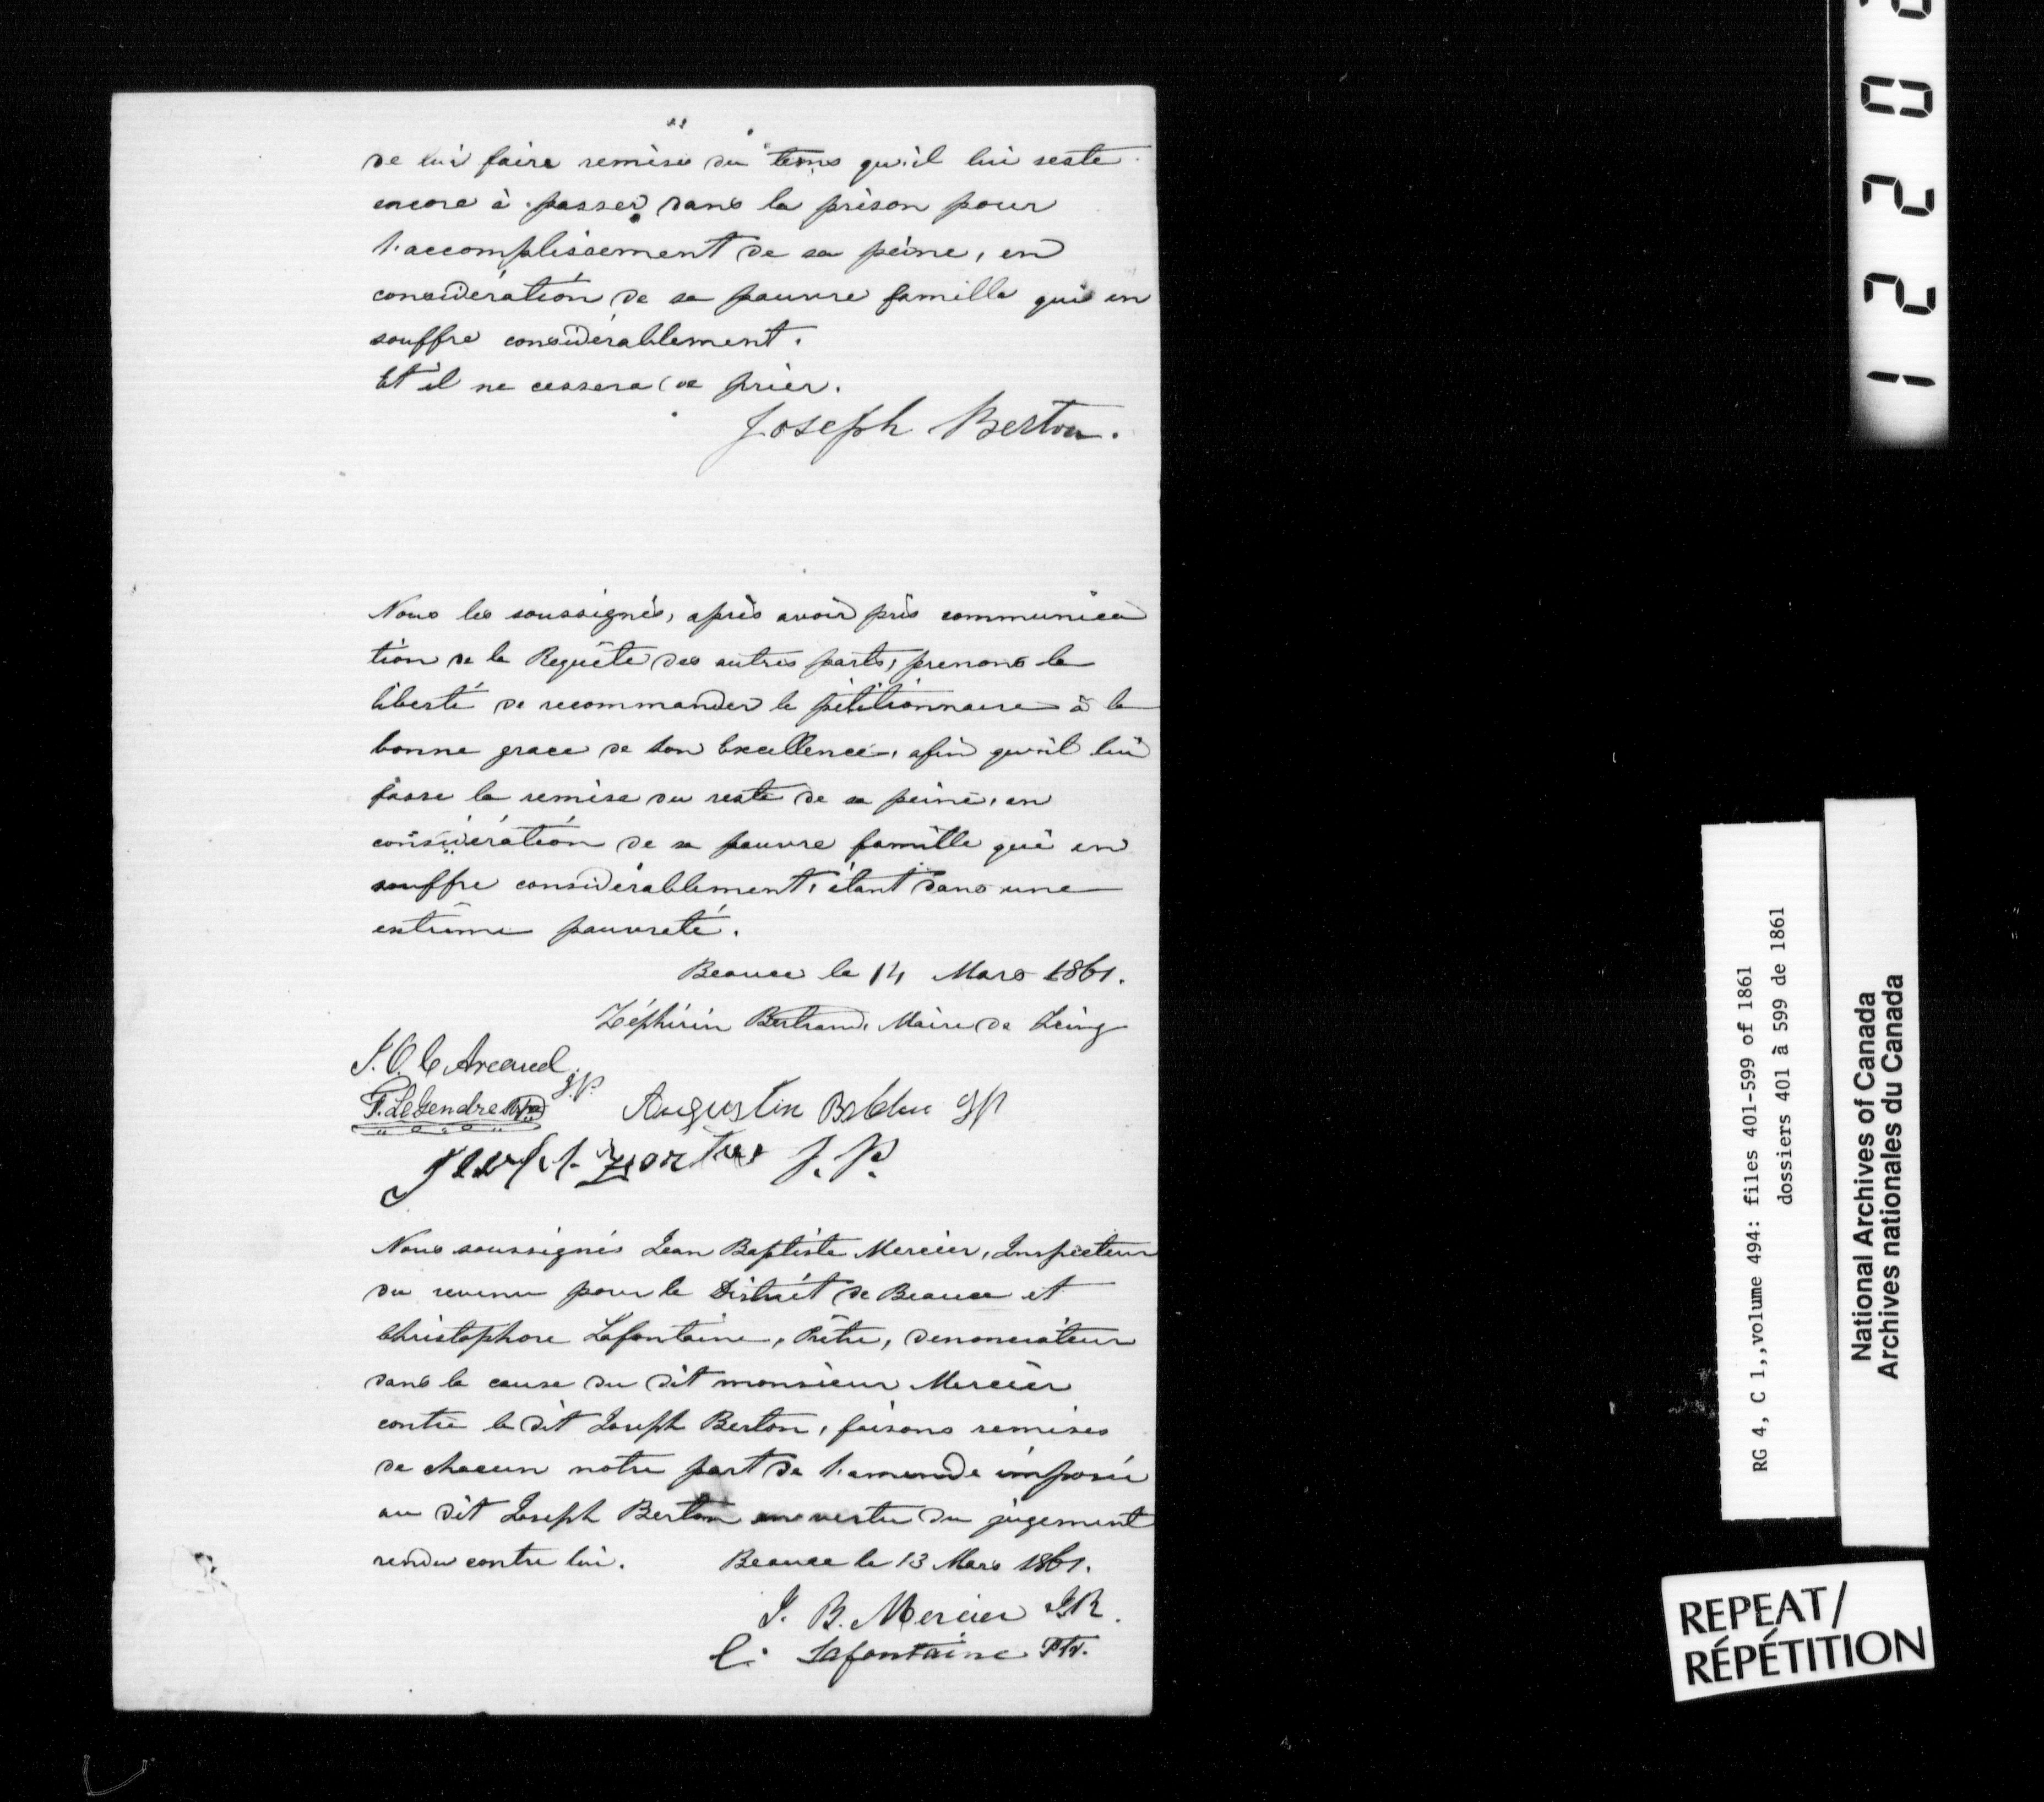 de lui faire remise du tems qu'il lui reste
encore à passer dans la prison pour
l'accomplissement de sa peine, en
considération de sa pauvre famille qui en
souffre considérablement.
Et il ne cessera de prier.
Joseph Berton.
Nous les soussignés, après avoir pris communica
tion de la Requête des autres parts, prenons la
liberté de recommander le pétitionnaire à la
bonne grace de Son Excellence, afin qu'il lui
fasse la remise du reste de sa peine, en
considération de sa pauvre famille qui en
souffre considérablement, étant dans une
extrême pauvreté.
Beauce le 14 Mars 1861.
Zéphirin Bertrand, Maire de
J. O. C Arcand J.P.
F. LeGendre
Augustin Bolduc JP
J.P.
Nous soussignés Jean Baptiste Mercier, Inspecteur
du revenu pour le District de Beauce et
Christophore Lafontaine, Prêtre, denonciateur
dans la cause du dit monsieur Mercier
contre le dit Joseph Berton, faisons remises
de chacun notre part de l'amende imposée
au dit Joseph Berton en vertu du jugement
rendu contre lui. Beauce le 13 Mars 1861.
J. B. Mercier I.R.
C. Lafontaine Ptr.
1220
RG 4, C 1,,volume 494: files 401-599 of 1861
dossiers 401 à 599 de 1861
National Archives of Canada
Archives nationales du Canada
REPEAT/
RÉPÉTITION